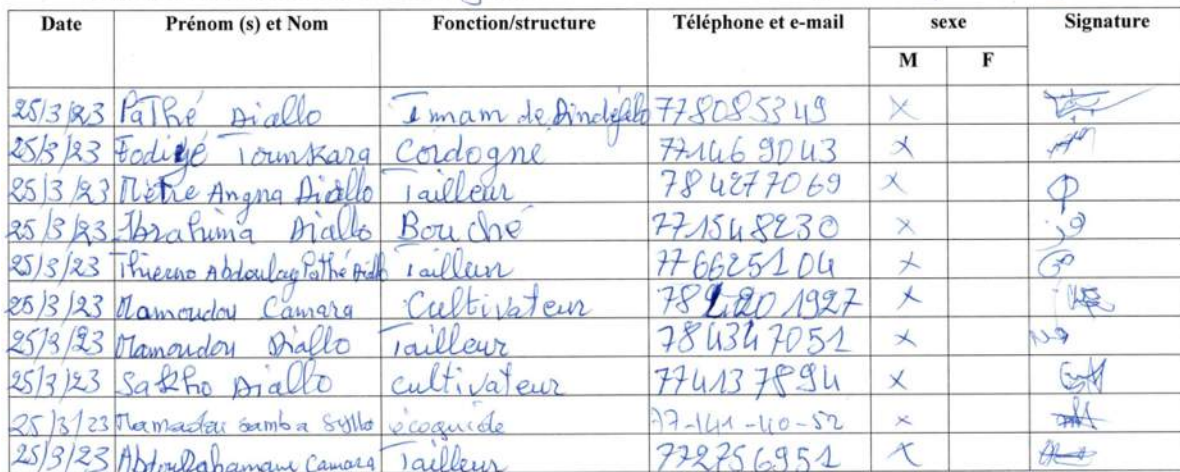 Date Prénom (s) et Nom Fonction/structure Téléphone et e-mail sexe Signature
M F
25/3/23 Pathé Diallo Imam de Dindéfélo 778085349 X
25/3/23 Fodigé Tounskara Cordogne 771469043 X
25/3/23 Mètre Angna Diallo Tailleur 784277069 X
25/3/23 Ibrahima Diallo Bouché 771548230 X
25/3/23 Thierno Abdoulay Pathé Diallo Tailleur 776625104 X
25/3/23 Mamoudou Camara Cultivateur 1927 X
25/3/23 Mamoudou Diallo Tailleur 784347051 X
25/3/23 Sakho Diallo cultivateur 774137894 X
25/3/23 Mamadou Samba Syllo écoguide 77-141-40-52 X
25/3/23 Abdourahamane Camara Tailleur 772756951 X